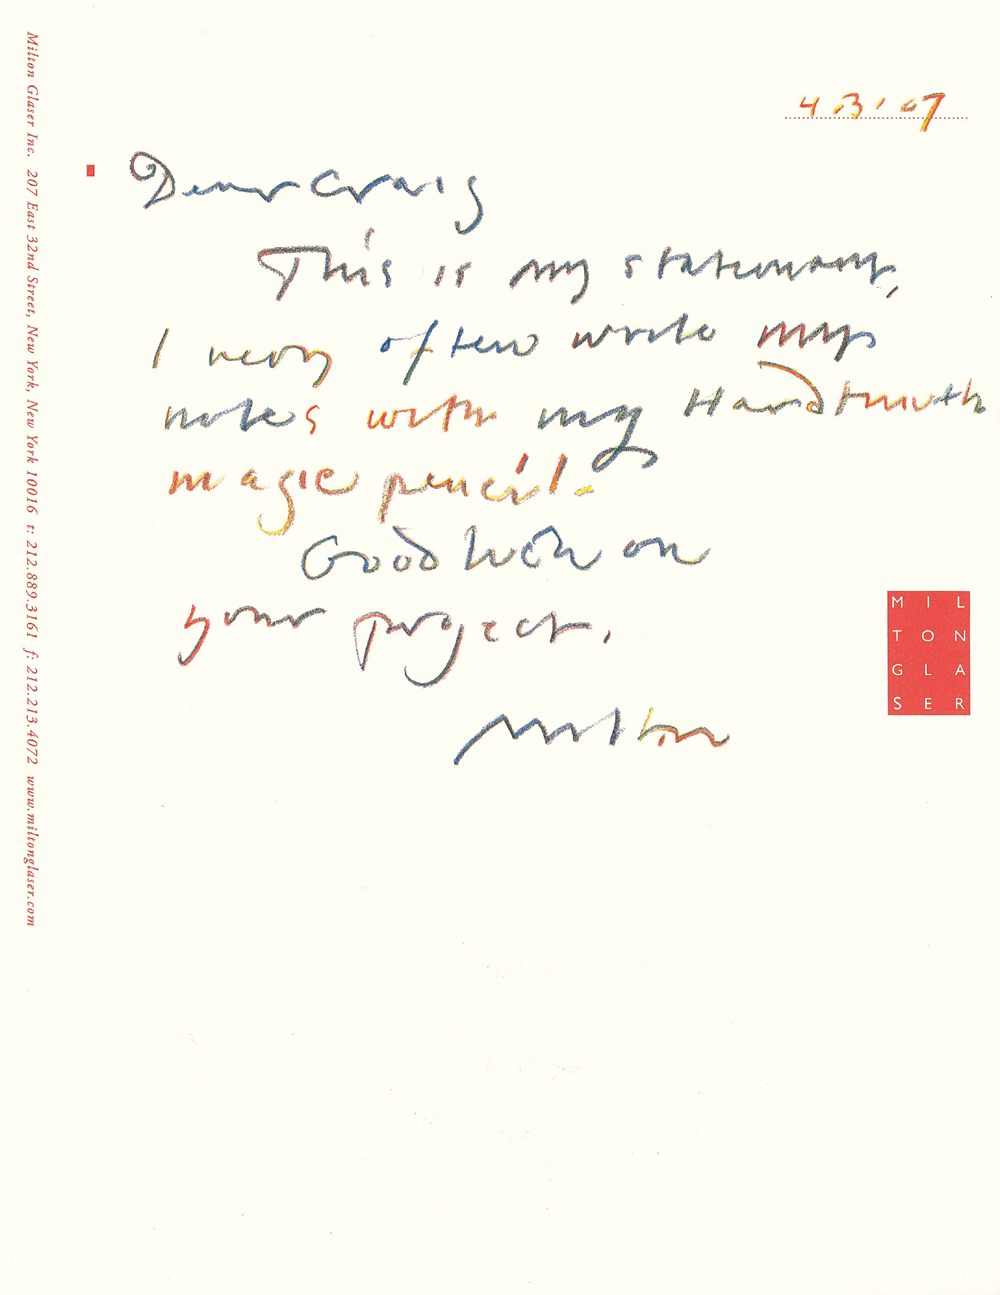 Milton Glaser Inc. 207 East 32nd Street, New York, New York 10016 t: 212.889.3161 f: 212.213.4072 www.miltonglaser.com
4.3.07
Dear Craig
This is my stationary,
I very often write my
notes with my Hardtmuth
magic pencil.
Good luck on
your project.
Milton
MIL
TON
GLA
SER